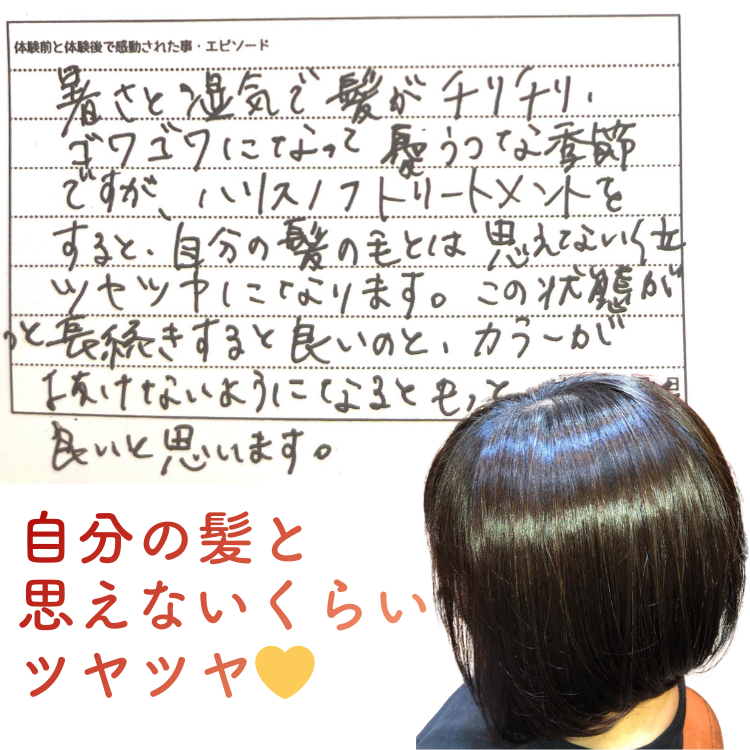 体験前と体験後で感動された事・エピソード
暑さと湿気で髪がチリチリ、
ゴワゴワになって憂うつな季節
ですが、ハリスノフトリートメントを
すると、自分の髪の毛とは思えない位
ツヤツヤになります。この状態が
っと長続きすると良いのと、カラーが
ぬけないようになるともっと
良いと思います。
自分の髪と
思えないくらい
ツヤツヤ